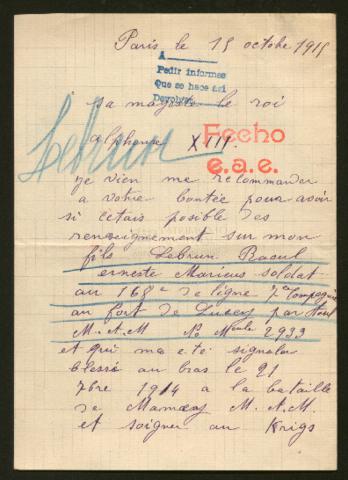 Paris le 15 octobre 1915
A
Pedir informes
Que se hace asi
Devolver
sa magesté le roi
Lebrun
alphonse XIII.
Fecho
e.a.e.
je vien me recommander
a votre bontée pour avoir
si cetais posible des
renseignement sur mon
fils Lebrun Raoul
erneste Marius soldat
au 168e de ligne 7e Compagnie
au fort de par Toul
M.A.M No Mule 2933
et qui ma ete signaler
blessé au bras le 21
7bre 1914 a la bataille
de Mamey M.A.M.
et soigner au Krigs